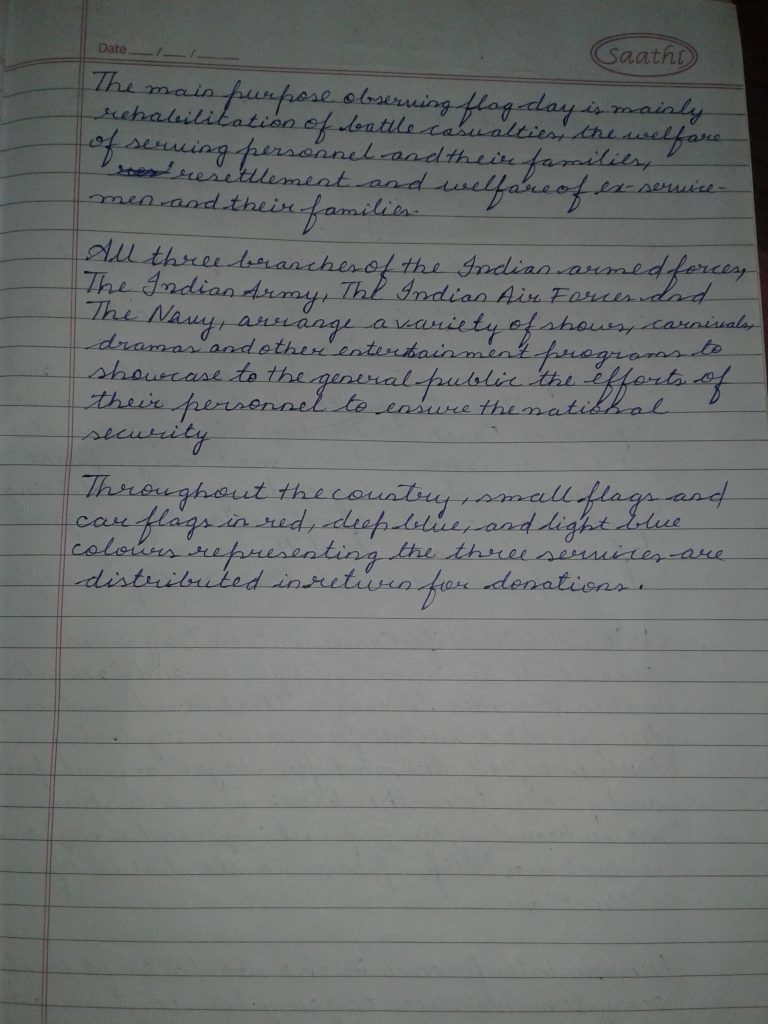 Date __/__/____
Saathi
The main purpose observing flag day is mainly
rehabilitation of battle casualties, the welfare
of serving personnel and their families,
resettlement and welfare of ex-service-
men and their families.
All three branches of the Indian armed forces,
The Indian Army, The Indian Air Forces and
The Navy, arrange a variety of shows, carnivals,
dramas and other entertainment programs to
showcase to the general public the efforts of
their personnel to ensure the national
security
Throughout the country, small flags and
car flags in red, deep blue, and light blue
colours representing the three services are
distributed in return for donations.